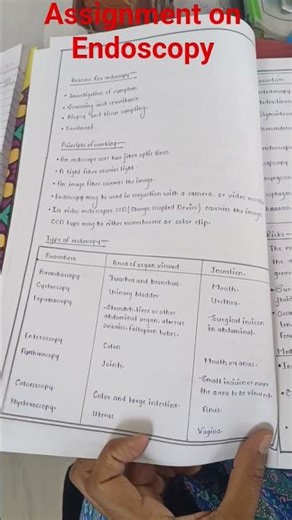 Assignment on
Endoscopy
Reasons for endoscopy -
• Investigation of symptom
• Screening and
• Biopsy and tissue sampling.
• treatment.
Principle of working -
• An endoscope uses two fiber optic lines
• A light fiber carries light.
• An image fiber carries the image.
• Endoscopy may be used in conjuction with a camera or video
• In video endoscopes CCD (Charge coupled Device) the image
CCD type may be either monochrome or color chip.
Type of endoscopy -
Procedure Area or organ viewed Insertion.
Bronchoscopy Trachea and bronchus. Mouth.
Cystoscopy Urinary bladder Urethra.
Stomach, liver or other Surgical incision
abdominal organ, uterus in abdominal.
ovaries fallopian tubes.
Enteroscopy Colon. Mouth or anus.
Joints. Small incision or near
the area to be viewed.
Colonoscopy Colon and large intestine. Anus.
Uterus Vagina.